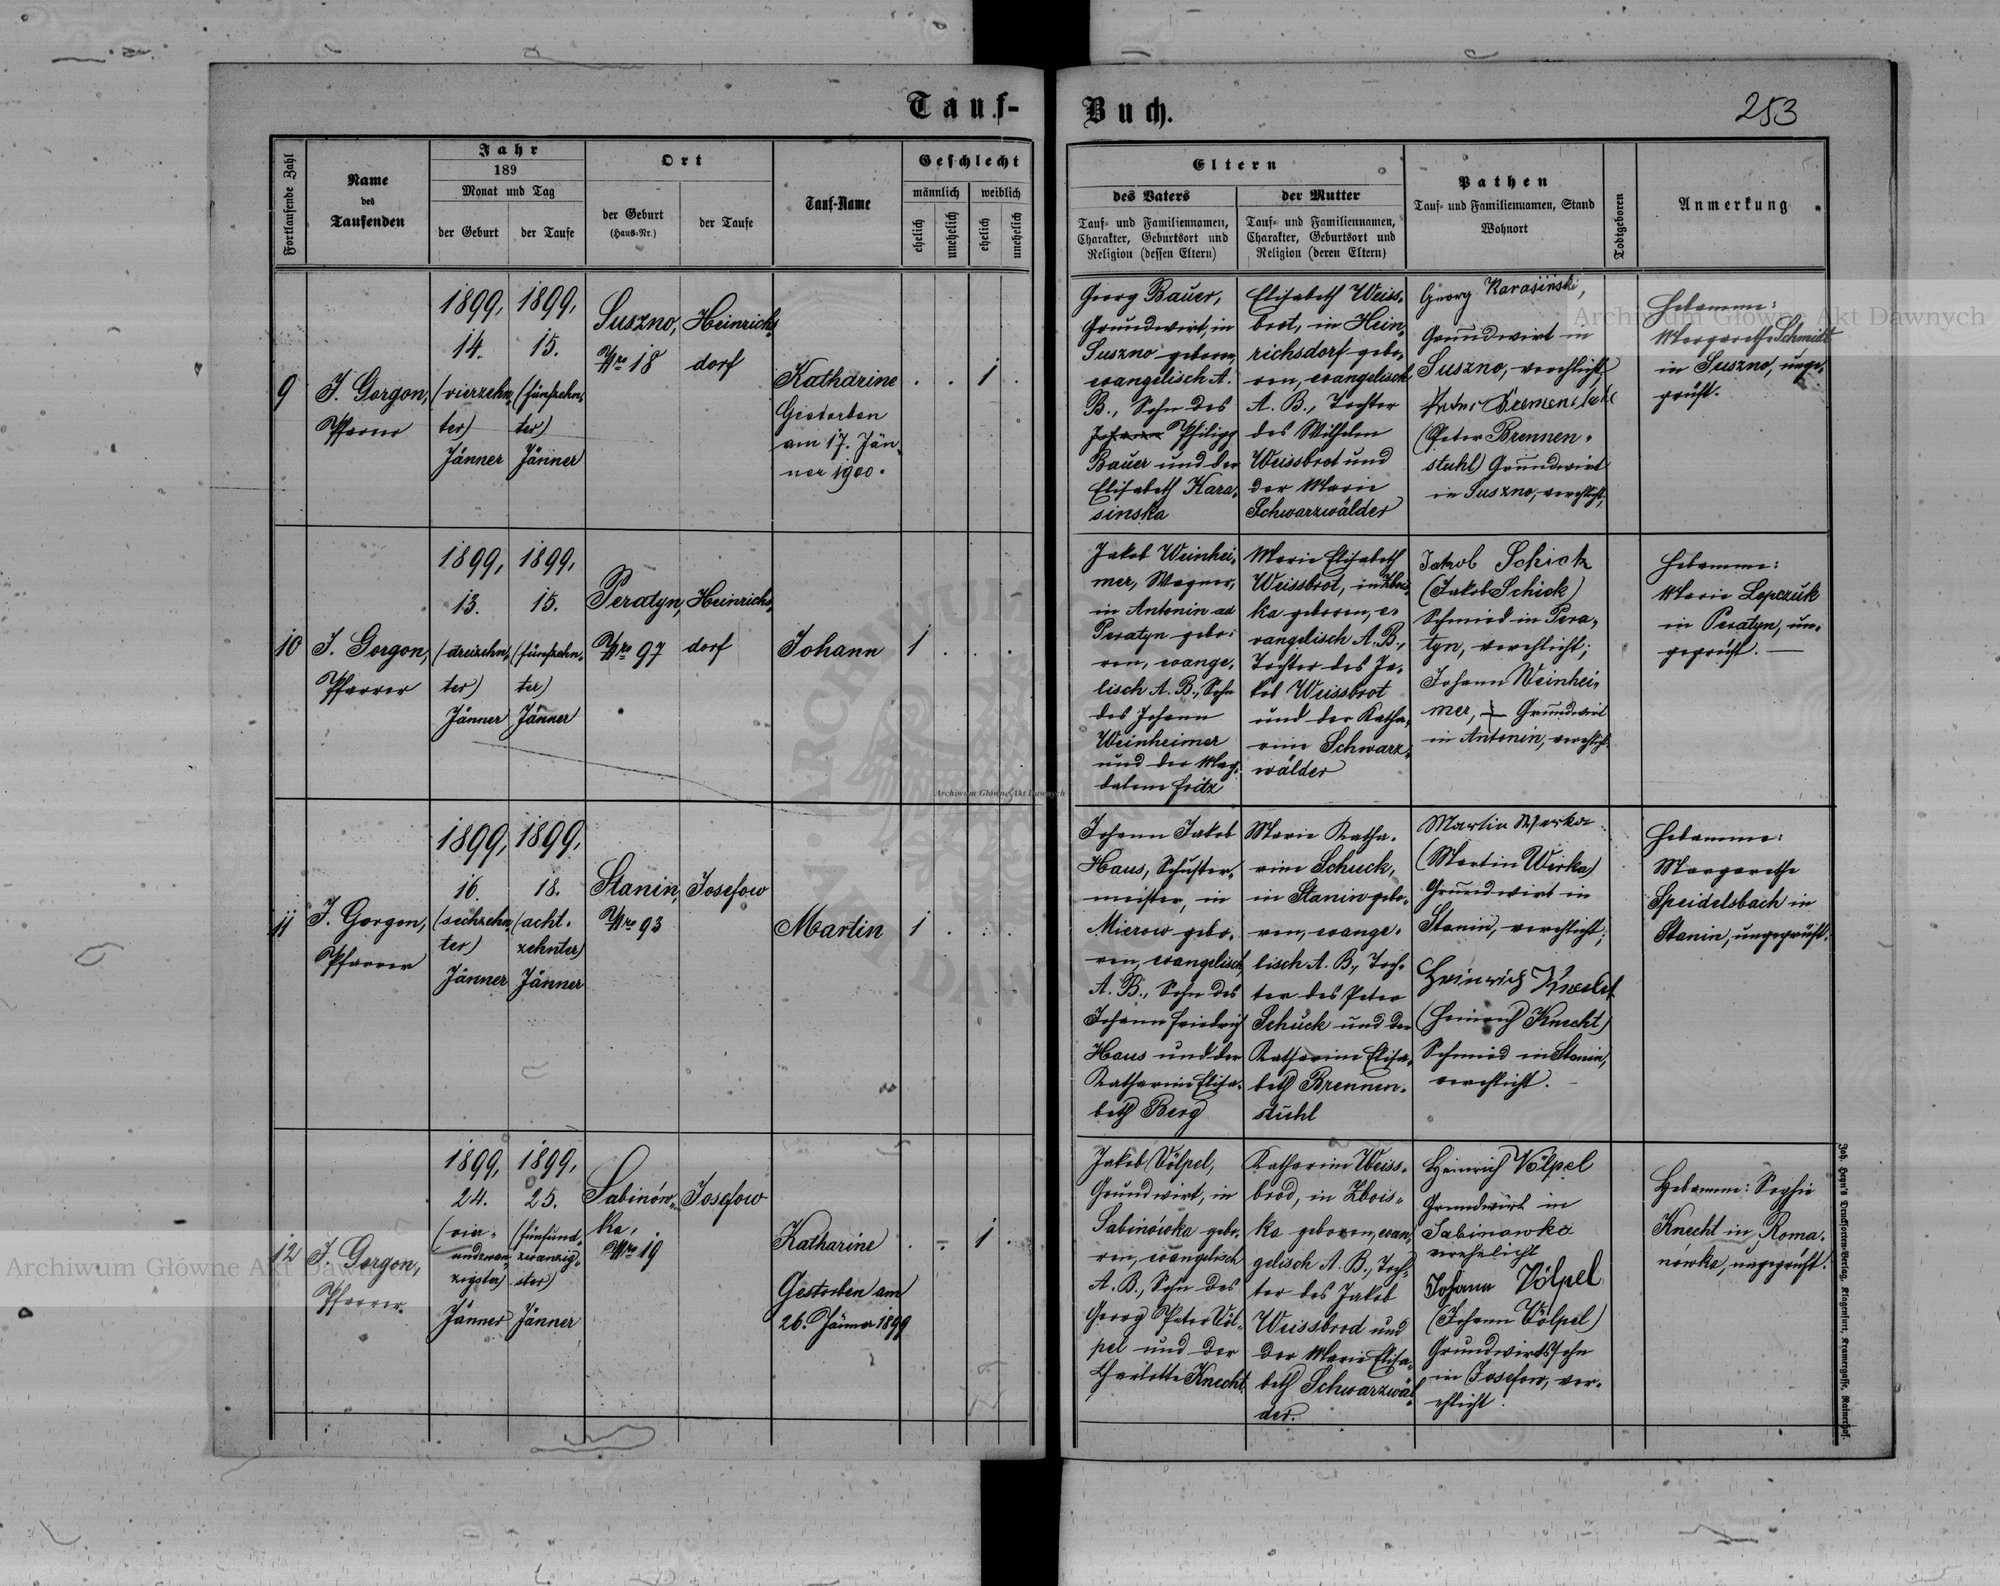 Tauf-
Buch.
253
Fortlaufende Zahl
Name
des
Taufenden
Jahr
189
Monat und Tag
der Geburt
der Taufe
Ort
der Geburt
(Haus-Nr.)
der Taufe
Tauf-Name
Geschlecht
männlich
weiblich
ehelich
unehelich
ehelich
unehelich
Eltern
des Vaters
Tauf- und Familiennamen,
Charakter, Geburtsort und
Religion (dessen Eltern)
der Mutter
Tauf- und Familiennamen,
Charakter, Geburtsort und
Religion (deren Eltern)
Pathen
Tauf- und Familiennamen, Stand
Wohnort
Todtgeboren
Anmerkung
9
J. Gorgon,
Pfarrer
1899,
14.
(vierzehn-
ter)
Jänner
1899,
15.
(fünfzehn-
ter)
Jänner
Suszno,
Nro 18
Heinrichs-
dorf
Katharine
Gestorben
am 17. Jän-
ner 1900.
1
Georg Bauer,
Grundwirt, in
Suszno geboren,
evangelisch A.
B., Sohn des
Johann Philipp
Bauer und der
Elisabeth Kara-
sinska
Elisabeth Weiss-
brot, in Hein-
richsdorf gebo-
ren, evangelisch
A. B., Tochter
des Wilhelm
Weissbrot und
der Marie
Schwarzwälder
Georg Karasinski,
Grundwirt in
Suszno, verehlicht,
Peter
(Peter Brennen-
stuhl) Grundwirt
in Suszno, verehlicht,
Hebamme:
Margarethe Schmidt
in Suszno, unge-
prüft.
10
J. Gorgon,
Pfarrer
1899,
13.
(dreizehn-
ter)
Jänner
1899,
15.
(fünfzehn-
ter)
Jänner
Peratyn,
Nro 97
Heinrichs-
dorf
Johann
1
Jakob Weinhei-
mer, Wagner,
in Antonin ad
Peratyn gebo-
ren, evange-
lisch A. B., Sohn
des Johann
Weinheimer
und der Mag-
dalena Fritz
Marie Elisabeth
Weissbrot, in Zbois-
ka geboren, e-
vangelisch A. B.,
Tochter des Ja-
kob Weissbrot
und der Katha-
rine Schwarz-
wälder
Jakob Schick
(Jakob Schick)
Schmied in Pera-
tyn, verehlicht;
Johann Weinhei-
mer, Grundwirt
in Antonin, verehlicht
Hebamme:
Marie Lopczuk
in Peratyn, un-
geprüft.
11
J. Gorgon,
Pfarrer
1899,
16.
(sechzehn-
ter)
Jänner
1899,
18.
(acht-
zehnter)
Jänner
Stanin,
Nro 93
Josefow
Martin
1
Johann Jakob
Haus, Schuster-
meister, in
Mierow gebo-
ren, evangelisch
A. B., Sohn des
Johann Friedrich
Haus und der
Katharine Elisa-
beth Berg
Marie Katha-
rine Schuck,
in Stanin gebo-
ren, evange-
lisch A. B., Toch-
ter des Peter
Schuck und der
Katharine Elisa-
beth Brennen-
stuhl
Martin Werka
(Martin Werka)
Grundwirt in
Stanin, verehlicht;
Heinrich Knecht
(Heinrich Knecht)
Schmied in Stanin,
verehlicht.
Hebamme:
Margarethe
Speidelsbach in
Stanin, ungeprüft.
12
J. Gorgon,
Pfarrer
1899,
24.
(vier-
undzwan-
zigster)
Jänner
1899,
25.
(fünfund-
zwanzig-
ster)
Jänner
Sabinów-
ka,
Nro 19
Josefow
Katharine
Gestorben am
26. Jänner 1899
1
Jakob Völpel,
Grundwirt, in
Sabinówka gebo-
ren, evangelisch
A. B., Sohn des
Georg Peter Völ-
pel und der
Charlotte Knecht.
Katharine Weiss-
brod, in Zbois-
ka geboren, evan-
gelisch A. B., Toch-
ter des Jakob
Weissbrod und
der Marie Elisa-
beth Schwarzwäl-
der.
Heinrich Völpel
Grundwirt in
Sabinowka
verehelicht
Johann Völpel
(Johann Völpel)
Grundwirtssohn
in Josefow, ver-
ehlicht.
Hebamme: Sophie
Knecht in Roma-
nówka, ungeprüft.
Joh. Heyn's Drucksorten-Verlag, Klagenfurt, Kramergasse, Rainerhof.
Archiwum Główne Akt Dawnych
Archiwum Główne Akt Dawnych
Archiwum Główne Akt Dawnych